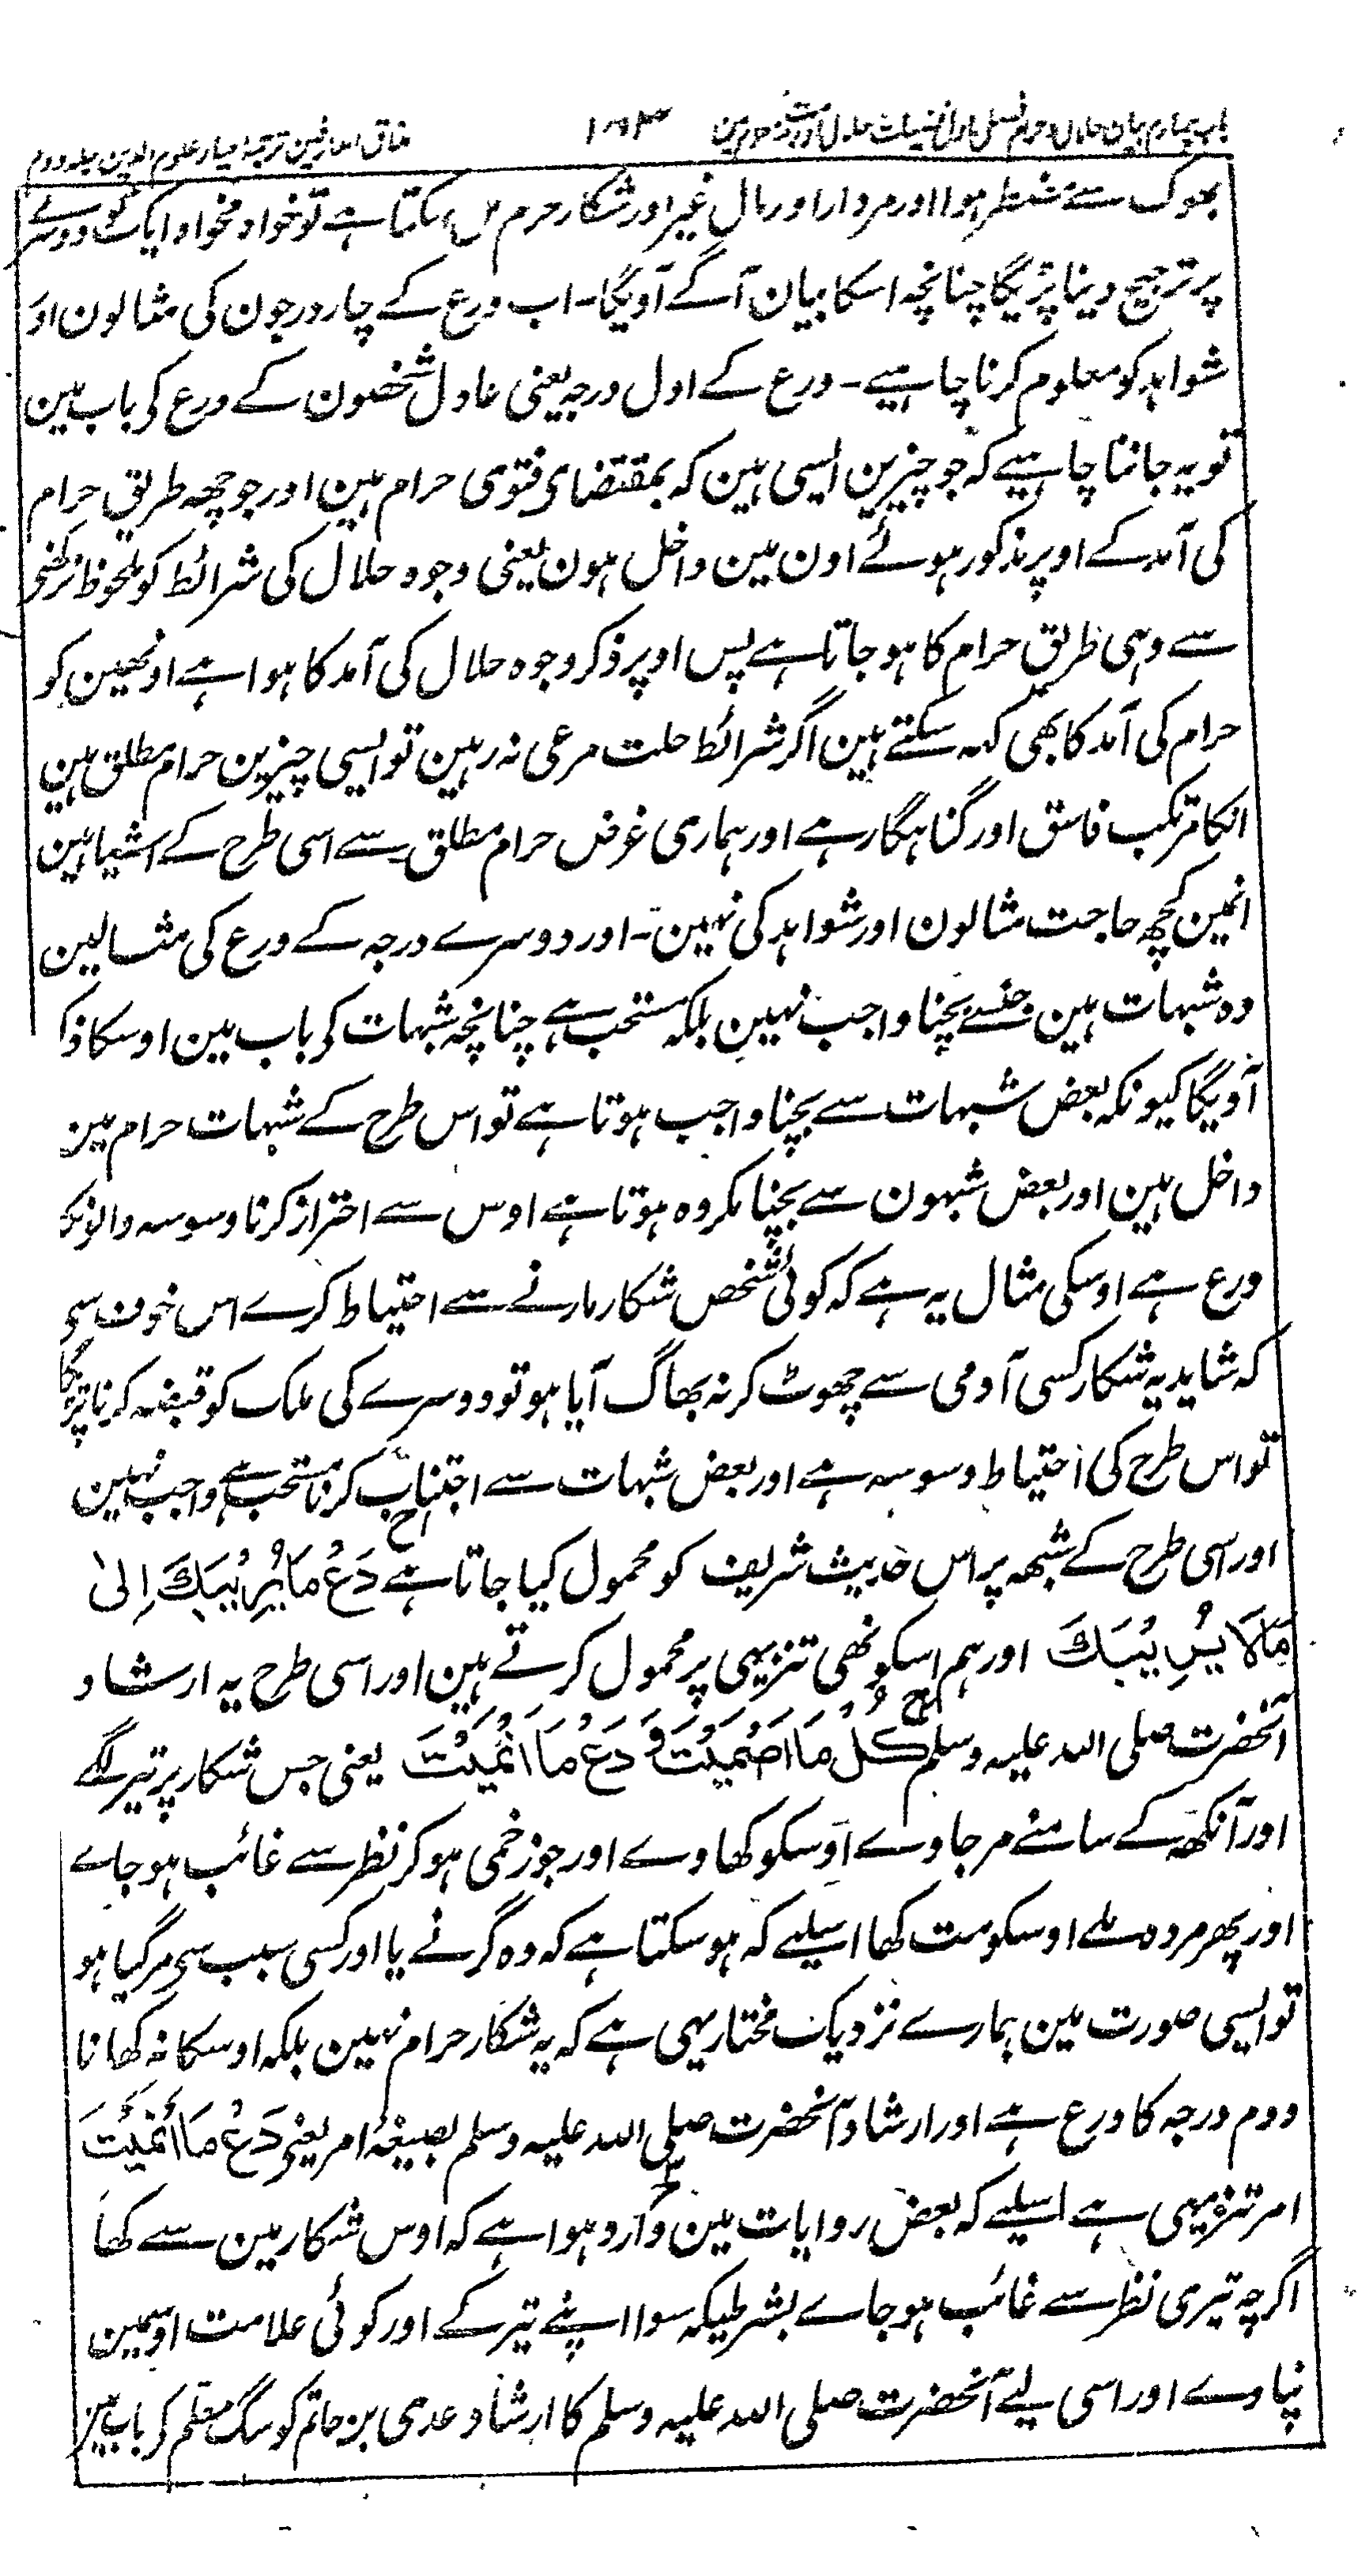 باب چہارم بیان حلال و حرام فصل اول فضیلت حلال اور مذمت حرام مین ۱۸۳ مذاق العارفین ترجمہ احیاء علوم الدین جلد دوم
بھوک سے مضطر ہوا اور مردار اور مال غیر اور شکار حرم مل سکتا ہے تو خواہ مخواہ ایک کو دوسرے
پر ترجیح دینا پڑیگا چنانچہ اسکا بیان آگے آویگا۔ اب ورع کے چار درجون کی مثالون اور
شواہد کو معلوم کرنا چاہیے۔ ورع کے اول درجہ یعنی عادل شخصون کے ورع کی باب مین
تو یہ جاننا چاہیے کہ جو چیزین ایسی ہین کہ بمقتضای فتوی حرام ہین اور جو چھہ طریق حرام
کی آمد کے اوپر مذکور ہوئے اون مین داخل ہون یعنی وجوہ حلال کی شرائط کو ملحوظ نرکھنی
سے وہی طریق حرام کا ہو جاتا ہے پس اوپر ذکر وجوہ حلال کی آمد کا ہوا ہے اونھین کو
حرام کی آمد کا بھی کہہ سکتے ہین اگر شرائط حلت مرعی نہ رہین تو ایسی چیزین حرام مطلق ہین
انکا مرتکب فاسق اور گناہگار ہے اور ہماری غرض حرام مطلق سے اسی طرح کے اشیا ہین
انمین کچھ حاجت مثالون اور شواہد کی نہین۔ اور دوسرے درجہ کے ورع کی مثالین
وہ شبہات ہین جنسے بچنا واجب نہین بلکہ مستحب ہے چنانچہ شبہات کی باب مین اوسکا ذکر
آویگا کیونکہ بعض شبہات سے بچنا واجب ہوتا ہے تو اس طرح کے شبہات حرام مین
داخل ہین اور بعض شبہون سے بچنا مکروہ ہوتا ہے اوس سے احتراز کرنا وسوسہ والونکا
ورع ہے اوسکی مثال یہ ہے کہ کوئی شخص شکار مارنے سے احتیاط کرے اس خوف سی
کہ شاید یہ شکار کسی آدمی سے چھوٹ کر نہ بھاگ آیا ہو تو دوسرے کی ملک کو قبضہ کرنا پڑیگا
تو اس طرح کی احتیاط وسوسہ ہے اور بعض شبہات سے اجتناب کرنا مستحب ہے واجب نہین
اور اسی طرح کے شبھہ پر اس حدیث شریف کو محمول کیا جاتا ہے دَعْ مَا يُرِيْبُكَ اِلىٰ
مَا لَا يُرِيْبُكَ اور ہم اسکو نھی تنزیہی پر محمول کرتے ہین اور اسی طرح یہ ارشاد
آنحضرت صلی اللہ علیہ وسلم كُلْ مَا اَصْمَيْتَ وَدَعْ مَا اَنْمَيْتَ یعنی جس شکار پر تیر لگے
اور آنکھ کے سامنے مر جاوے اوسکو کھاوے اور جو زخمی ہو کر نظر سے غائب ہو جاے
اور پھر مردہ ملے اوسکو مت کھا اسلیے کہ ہو سکتا ہے کہ وہ گرنے یا اور کسی سبب سی مر گیا ہو
تو ایسی صورت مین ہمارے نزدیک مختار یہی ہے کہ یہ شکار حرام نہین بلکہ اوسکا نہ کھانا
دوم درجہ کا ورع ہے اور ارشاد آنحضرت صلی اللہ علیہ وسلم بصیغۂ امر یعنی دَعْ مَا اَنْمَيْتَ
امر تنزیہی ہے اسلیے کہ بعض روایات مین وارد ہوا ہے کہ اوس شکار مین سے کھا
اگرچہ تیری نظر سے غائب ہو جاے بشرطیکہ سوا اپنے تیر کے اور کوئی علامت اوسمین
نپاوے اور اسی لیے آنحضرت صلی اللہ علیہ وسلم کا ارشاد عدی بن حاتم کو سگ معلم کر باب مین